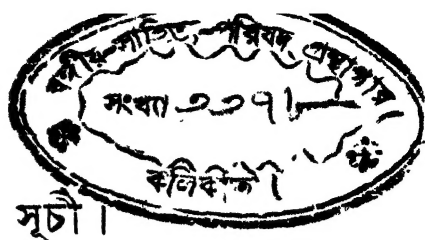 বঙ্গীয়-সাহিত্য-পরিষদ্ গ্রন্থাগার
সংখ্যা ৩৩৭১
কলিকাতা
সূচী ।